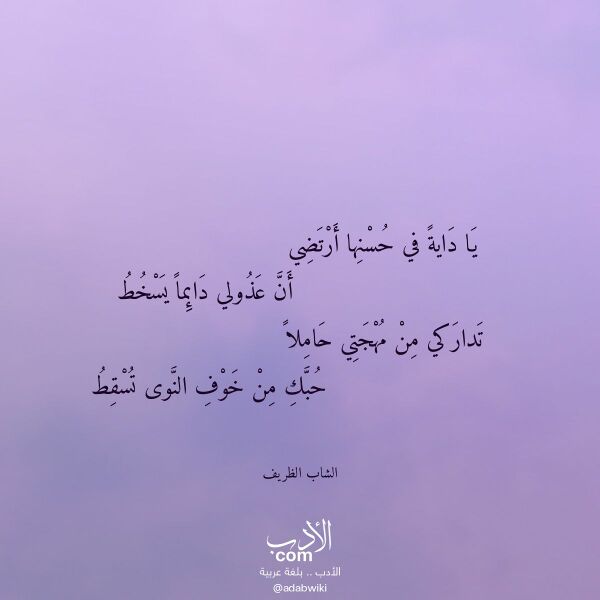 يَا دَايةً في حُسْنِها أَرْتَضِي
أَنَّ عَذُولي دَائِماً يَسْخُطُ
تَدارَكي مِنْ مُهْجَتِي حَامِلاً
حُبَّكِ مِنْ خَوْفِ النَّوى تُسْقِطُ
الشاب الظريف
الأدب
com
الأدب .. بلغة عربية
@adabwiki